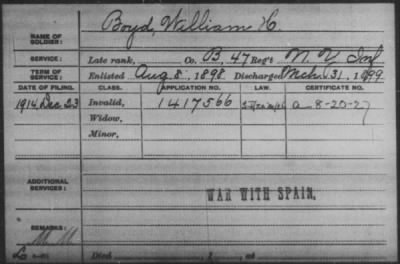 Boyd, William H.
NAME OF SOLDIER:
SERVICE: Late rank, Co. B, 47 Reg't N. Y. Inf
TERM OF SERVICE: Enlisted Aug 8, 1898 Discharged Mch. 31, 1899
DATE OF FILING. CLASS. APPLICATION NO. LAW. CERTIFICATE NO.
1914, Dec 23 Invalid, 1417566 a-8-20-27
Widow,
Minor,
ADDITIONAL SERVICES:
WAR WITH SPAIN.
REMARKS:
Died , 1 , at